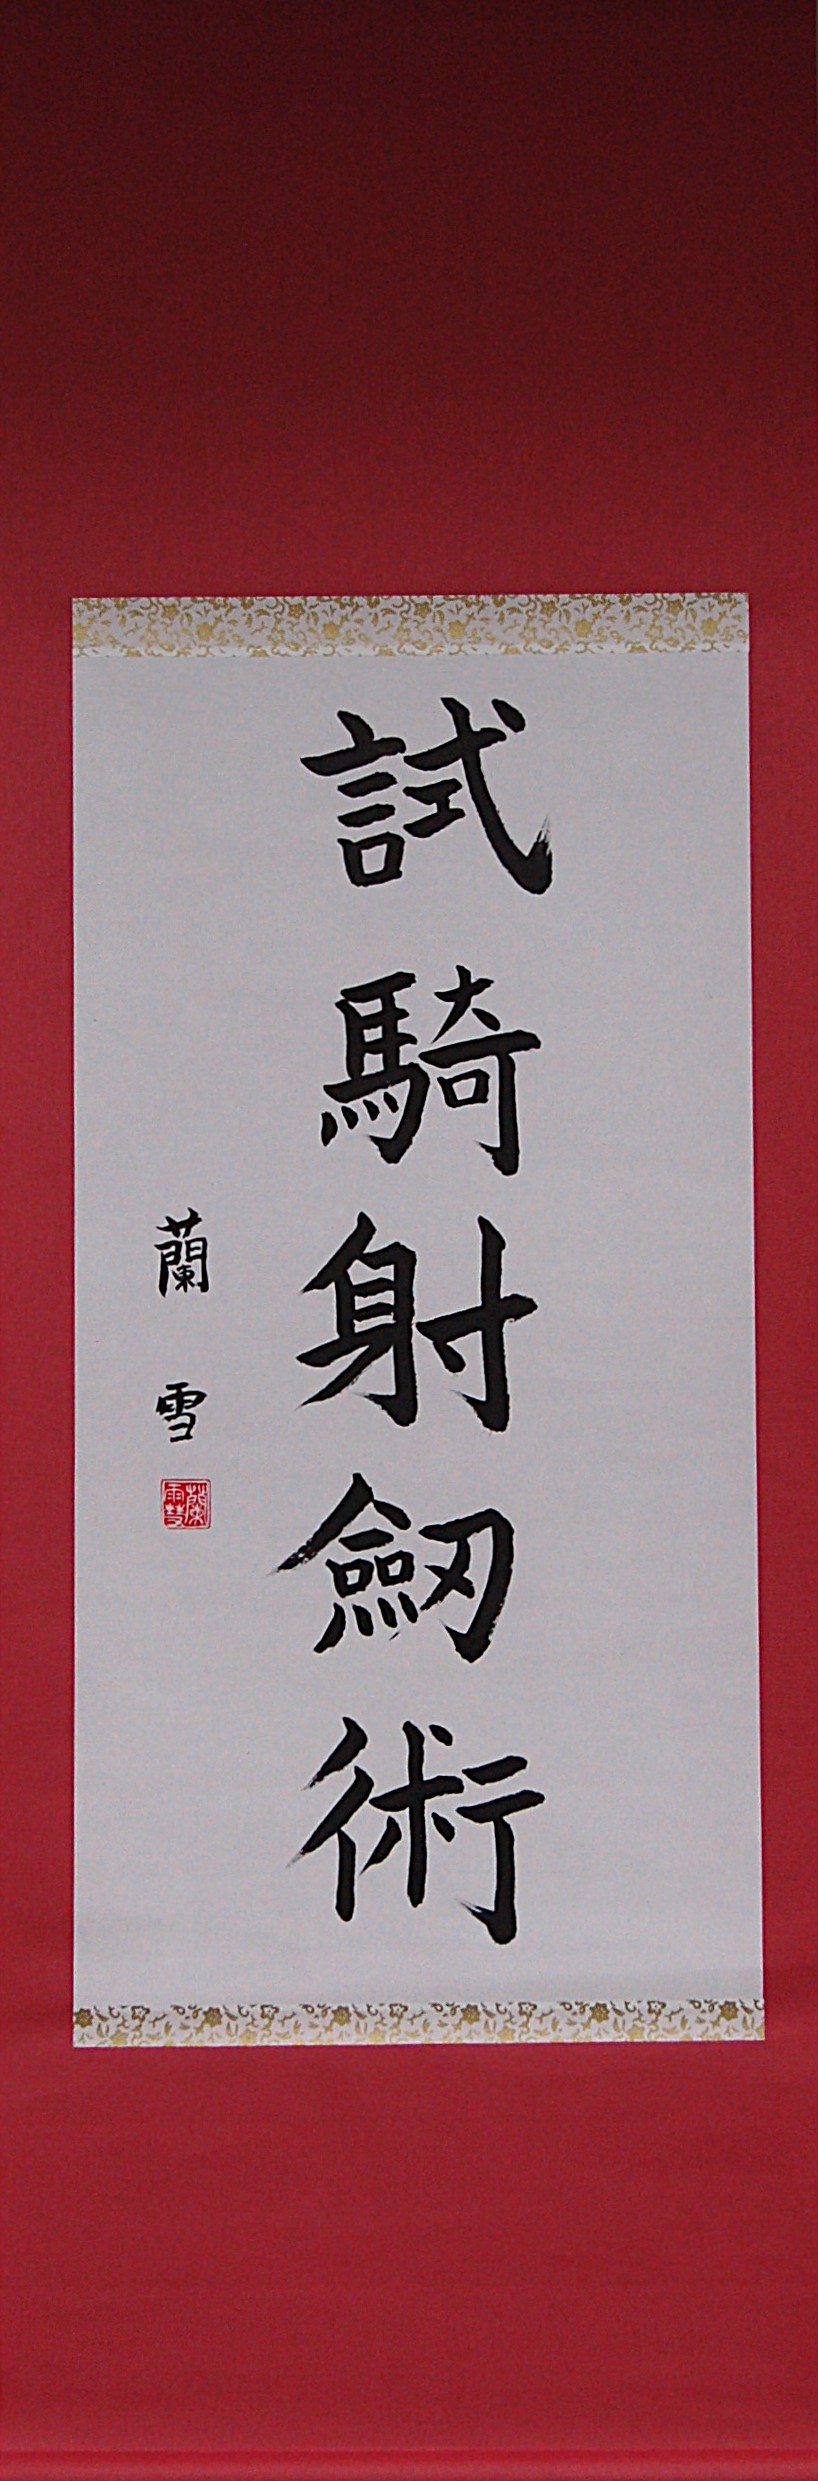 試騎射劒術
蘭雪
蘭雪